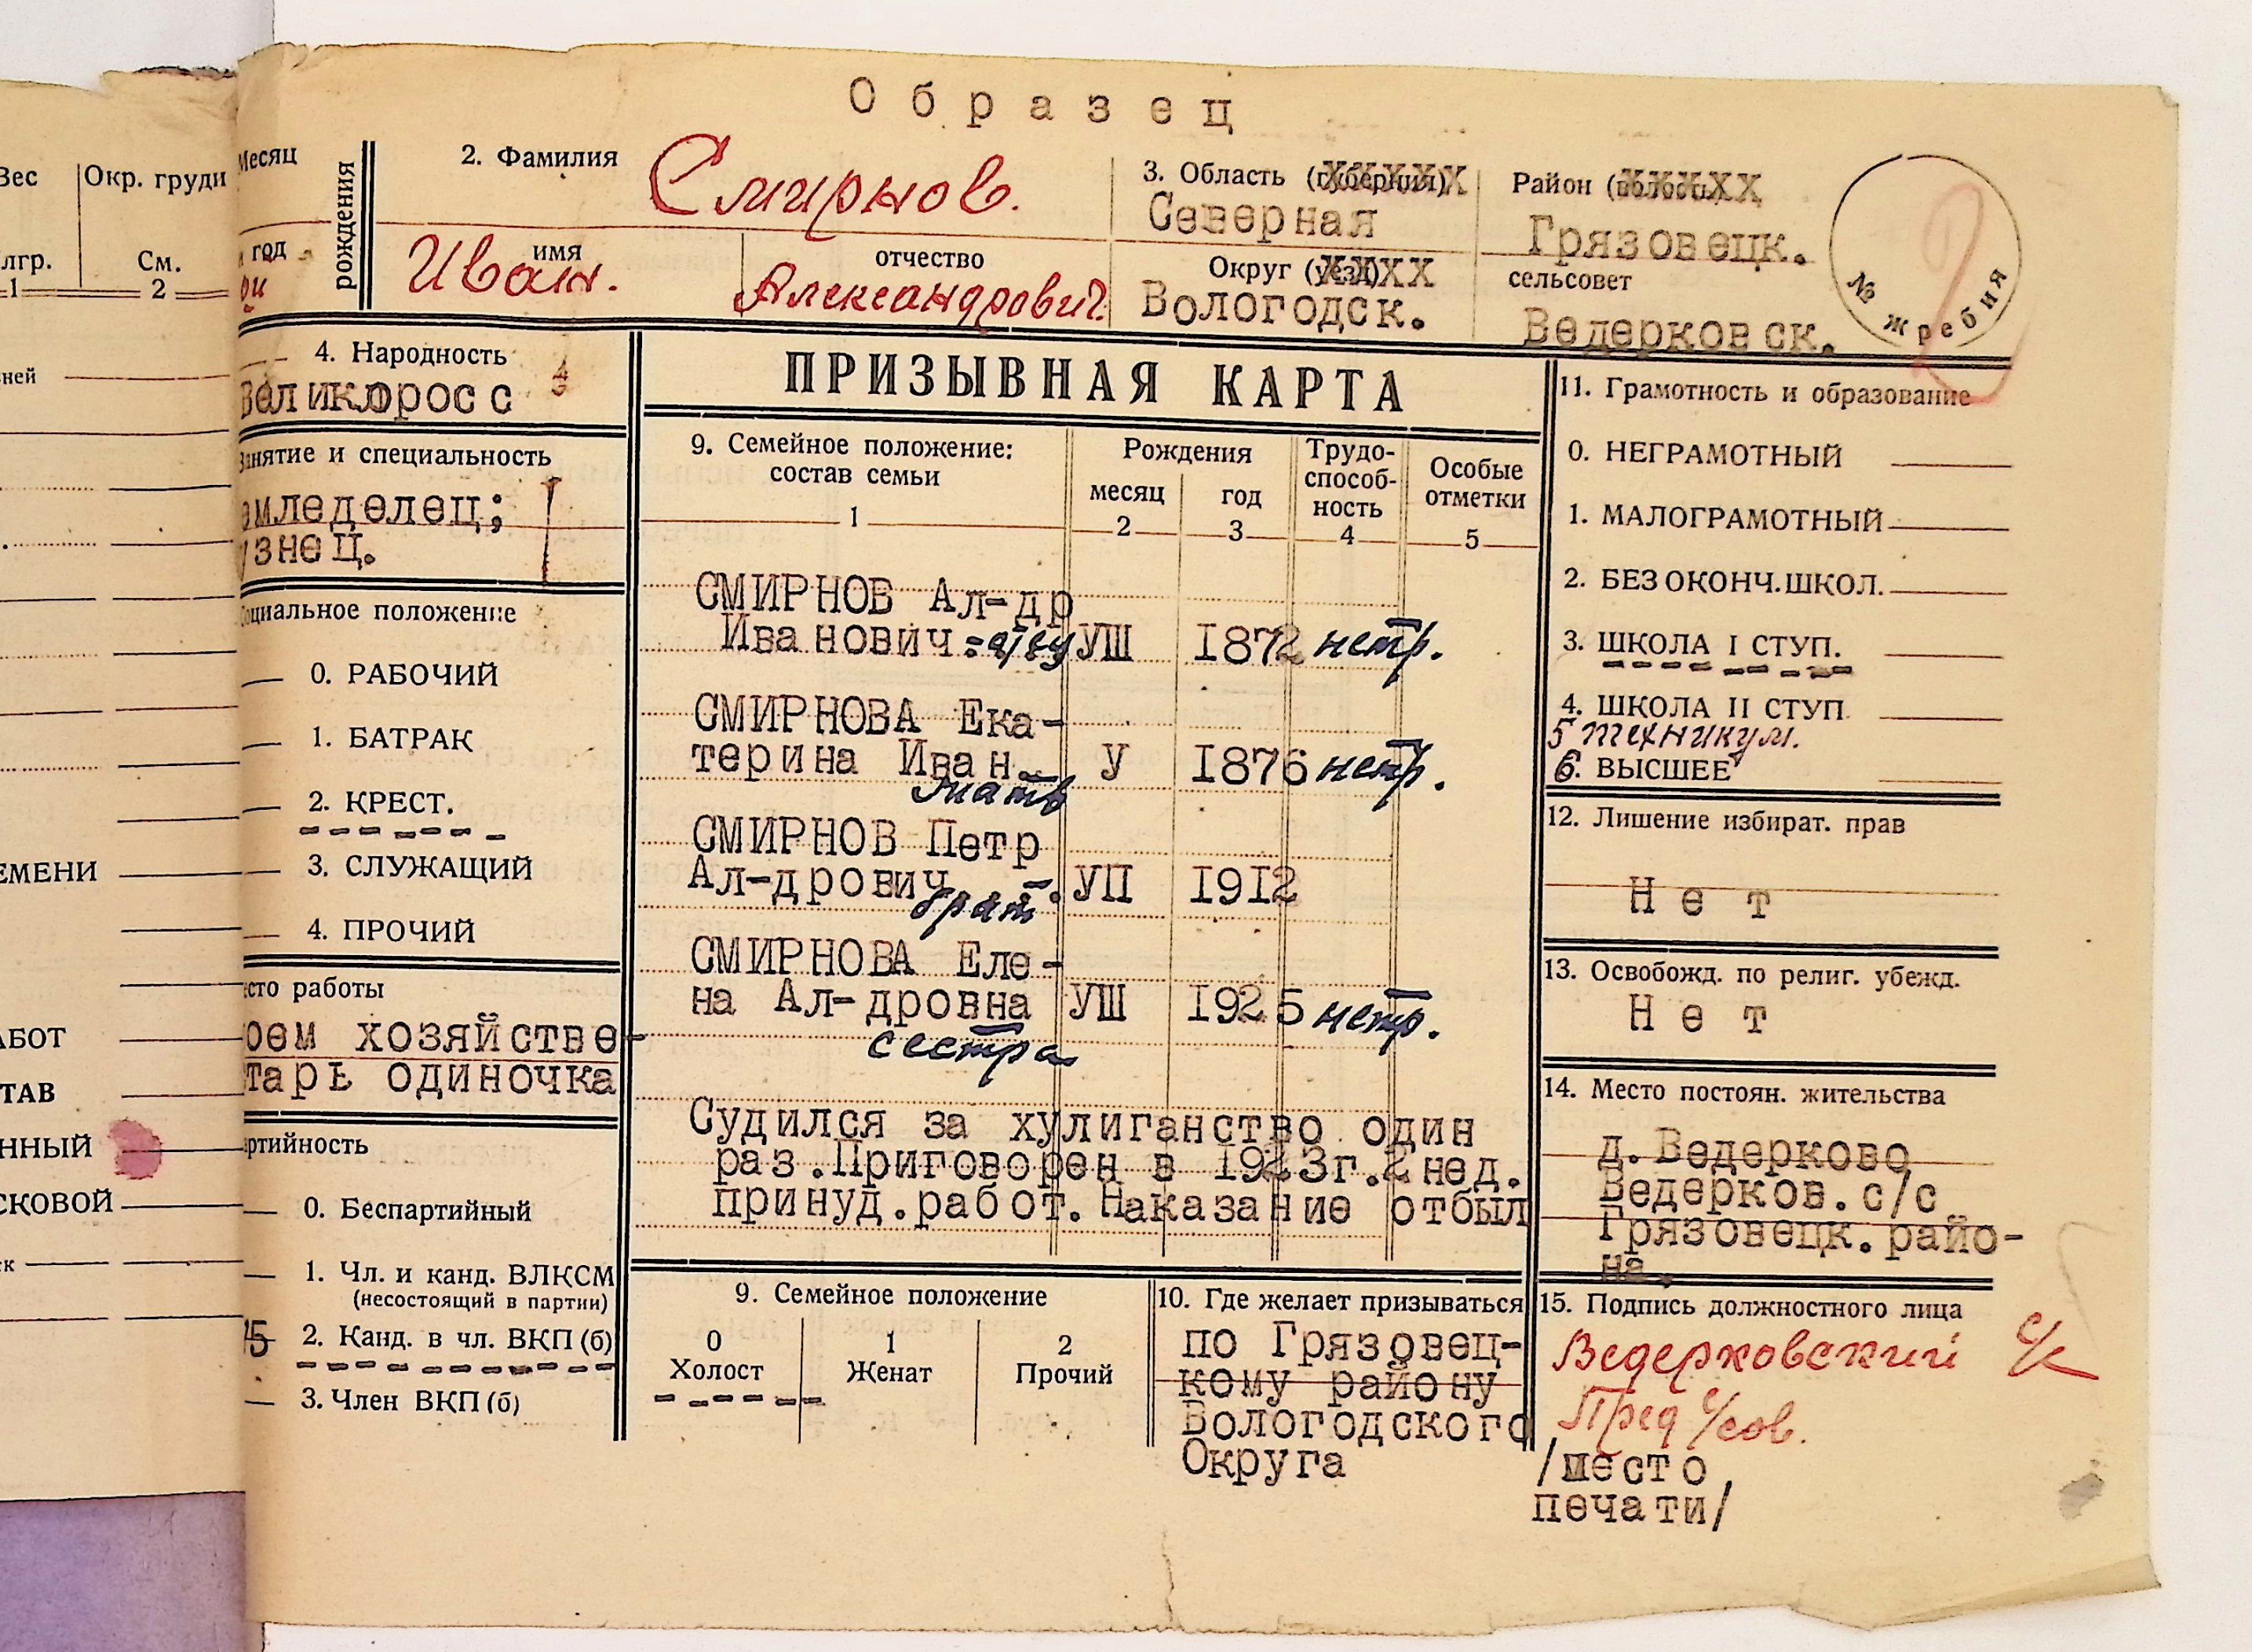 Образец
Вес
Окр. груди
лгр.
См.
1
2
ней
ЕМЕНИ
АБОТ
ТАВ
ННЫЙ
СКОВОЙ
к
Месяц
год
рождения
2. Фамилия Смирнов.
имя
Иван.
отчество
Александрович.
3. Область (губерния)
Северная
Район (волость)
Грязовецк.
Округ (уезд)
Вологодск.
сельсовет
Ведерковск.
№ жребия
2
4. Народность
Великоросс
Занятие и специальность
емледелец;
узнец.
Социальное положение
0. РАБОЧИЙ
1. БАТРАК
2. КРЕСТ.
3. СЛУЖАЩИЙ
4. ПРОЧИЙ
сто работы
оем хозяйстве-
тарь одиночка
артийность
0. Беспартийный
1. Чл. и канд. ВЛКСМ
(несостоящий в партии)
2. Канд. в чл. ВКП(б)
3. Член ВКП(б)
ПРИЗЫВНАЯ КАРТА
9. Семейное положение:
состав семьи
Рождения
месяц
год
Трудо-
способ-
ность
Особые
отметки
1 2 3 4 5
СМИРНОВ Ал-др
Иванович УШ 1872 нетр.
СМИРНОВА Ека-
терина Иван. У 1876 нетр.
мать
СМИРНОВ Петр
Ал-дрович. УП 1912
брат
СМИРНОВА Еле-
на Ал-дровна УШ 1925 нетр.
сестра
Судился за хулиганство один
раз.Приговорен в 1923г.2 нед.
принуд.работ. Наказание отбыл
9. Семейное положение
0 1 2
Холост Женат Прочий
10. Где желает призываться
по Грязовец-
кому району
Вологодского
Округа
11. Грамотность и образование
0. НЕГРАМОТНЫЙ
1. МАЛОГРАМОТНЫЙ
2. БЕЗ ОКОНЧ. ШКОЛ.
3. ШКОЛА I СТУП.
4. ШКОЛА II СТУП
5 техникум.
6. ВЫСШЕЕ
12. Лишение избират. прав
Нет
13. Освобожд. по религ. убежд.
Нет
14. Место постоян. жительства
д. Ведерково
Ведерков. с/с
Грязовецк. райо-
на.
15. Подпись должностного лица
Ведерковский с/с
Пред с/сов.
/место
печати/